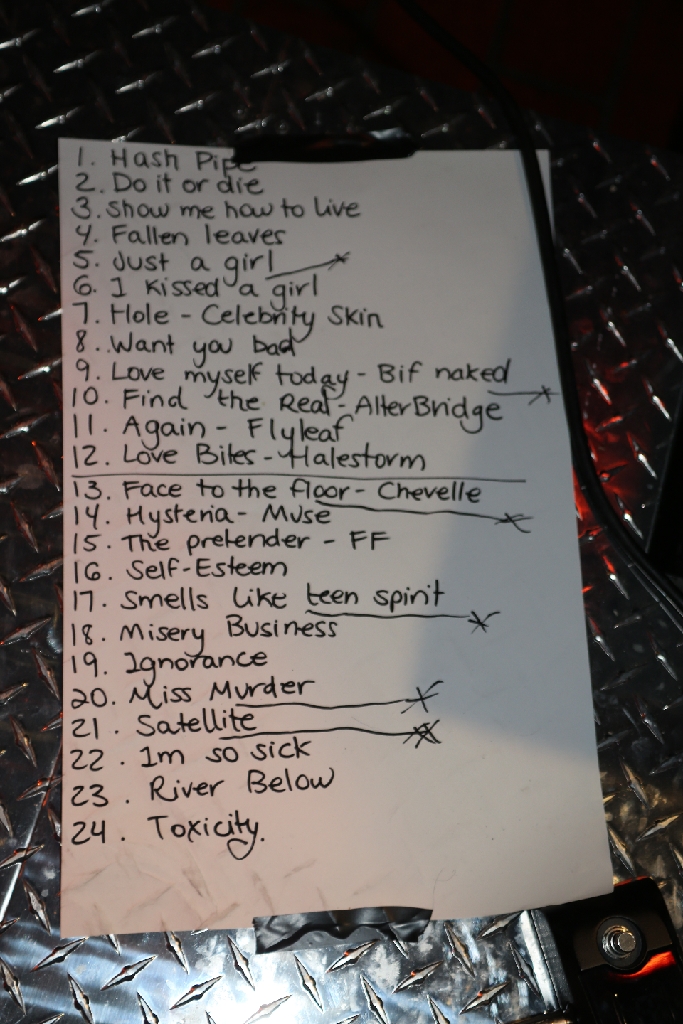 1. Hash Pipe
2. Do it or die
3. Show me how to live
4. Fallen leaves
5. Just a girl
6. I kissed a girl
7. Hole - Celebrity Skin
8. Want you bad
9. Love myself today - Bif naked
10. Find the Real - AlterBridge
11. Again - Flyleaf
12. Love Bites - Halestorm
13. Face to the floor - Chevelle
14. Hysteria - Muse
15. The pretender - FF
16. Self-Esteem
17. Smells like teen spirit
18. Misery Business
19. Ignorance
20. Miss Murder
21. Satellite
22. Im so sick
23. River Below
24. Toxicity.